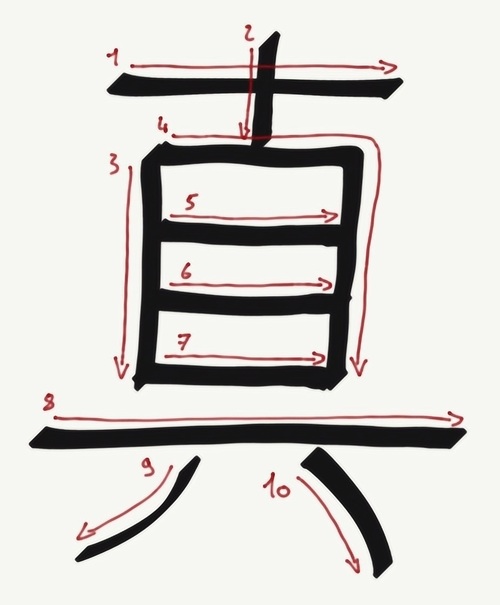 真
1
2
3
4
5
6
7
8
9
10